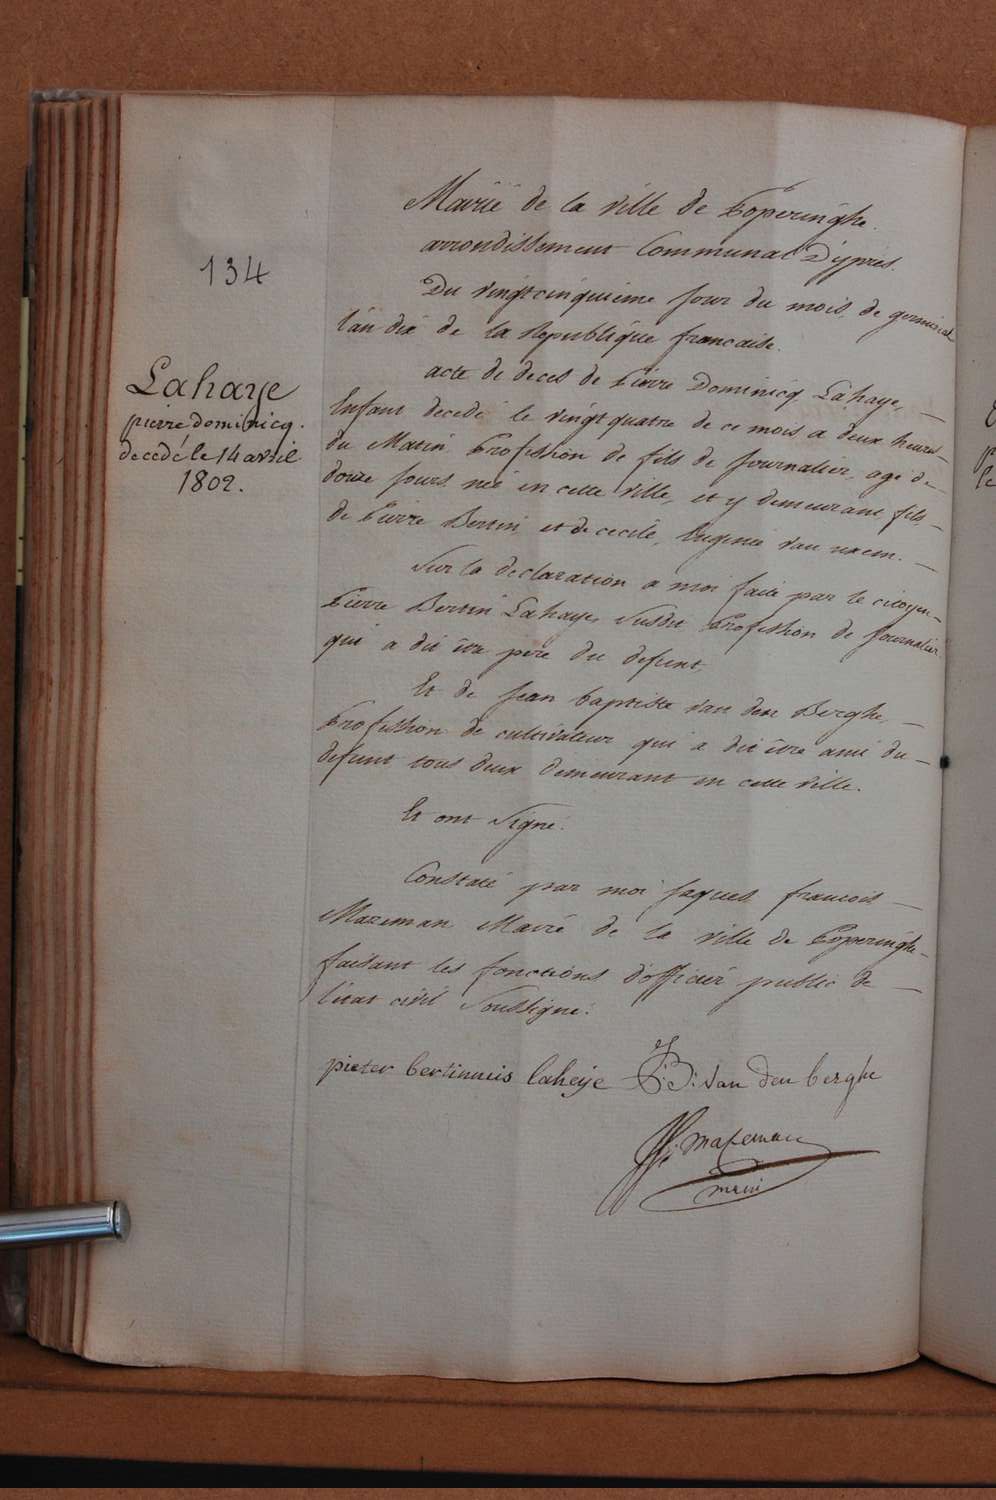 134
Lahaye
pierre dominicq.
decédé le 14 avril
1802.
Mairie de la ville de Poperinghe.
arrondissement Communal D'ypres.
Du vingtcinquieme jour du mois de germinal
l'an dix de la Republique francaise.
acte de deces de Pierre Dominicq Lahaye, —
Enfant decedé le vingt quatre de ce mois a deux heures
du Matin Profession de fils de Journalier, agé de
douze jours né en cette ville, et y demeurant, fils —
de Pierre Bertin et de cecile, Eugenie van . —
Sur la declaration a moi faite par le citoyen
Pierre Bertin Lahaye, Susdit Profession de Journalier
qui a dit être pere du defunt,
Et de Jean baptiste van den Berghe, —
Profession de cultivateur qui a dit être ami du —
defunt tous deux demeurant en cette ville.
Et ont Signé.
Constaté par moi Jaques francois —
Mazeman Maire de la ville de Poperinghe
faisant les fonctions d'officier public de —
l'état civil Soussigné.
pieter bertinus laheije J: B: van den berghe
JF: mazeman
maire